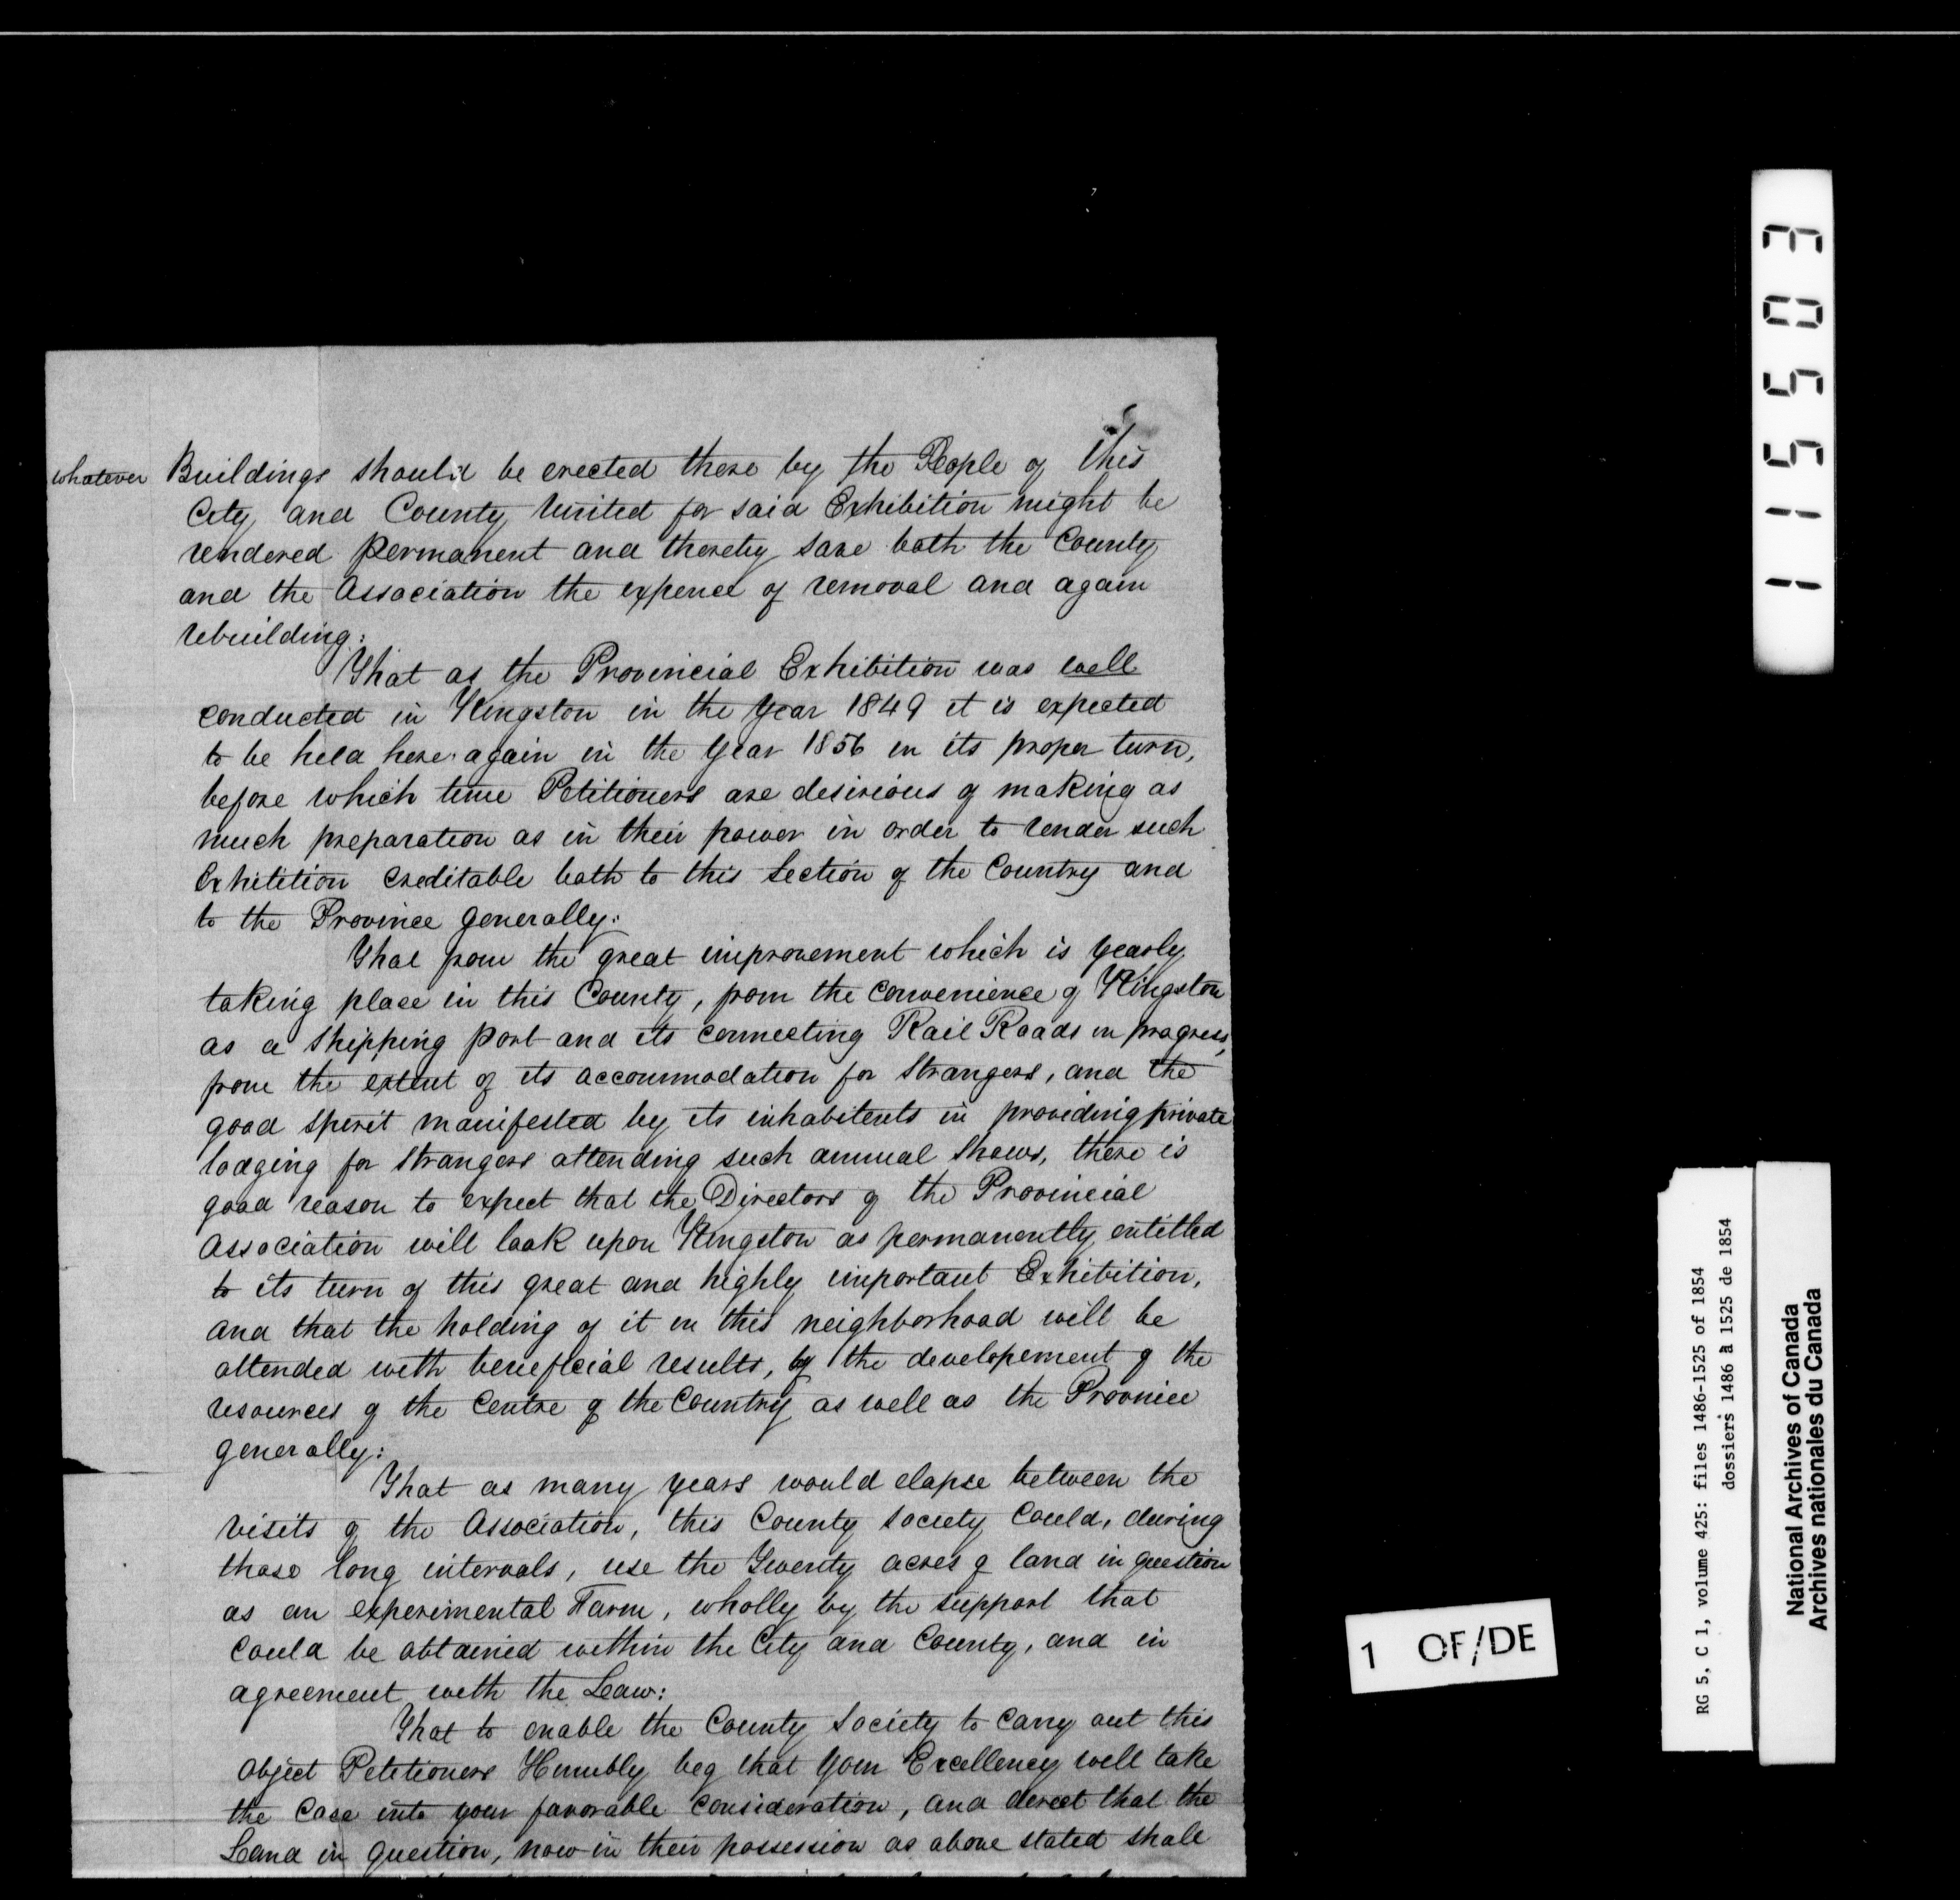 whatever Buildings should be erected there by the People of this
City and County United for said Exhibition might be
rendered permanent and thereby save both the County
and the Association the expence of removal and again
rebuilding:
That as the Provincial Exhibition was well
conducted in Kingston in the Year 1849 it is expected
to be held here again in the Year 1856 in its proper turn,
before which time Petitioners are desirious of making as
much preparation as in their power in order to render such
Exhibition creditable both to this Section of the Country and
to the Province generally:
That from the great improvement which is yearly
taking place in this County, from the convenience of Kingston
as a Shipping port and its connecting Rail Roads in progress,
from the extent of its accommodation for Strangers, and the
good spirit manifested by its inhabitents in providing private
lodging for Strangers attending such annual Shows, there is
good reason to expect that the Directors of the Provincial
Association will look upon Kingston as permanently entitled
to its turn of this great and highly important Exhibition,
and that the holding of it in this neighborhood will be
attended with beneficial results, by the developement of the
resources of the Centre of the Country as well as the Province
generally:
That as many years would elapse between the
visits of the Association, this County Society Could, during
those long intervals, use the Twenty acres of land in question
as an experimental Farm, wholly by the support that
could be obtained within the City and County, and in
agreement with the Law:
That to enable the County Society to Carry out this
object Petitioners Humbly beg that Your Excellency will take
the Case into your favorable Consideration, and direct that the
Land in question, now in their possession as above stated shall
115503
1 OF/DE
RG 5, C 1, volume 425: files 1486-1525 of 1854
dossiers 1486 à 1525 de 1854
National Archives of Canada
Archives nationales du Canada